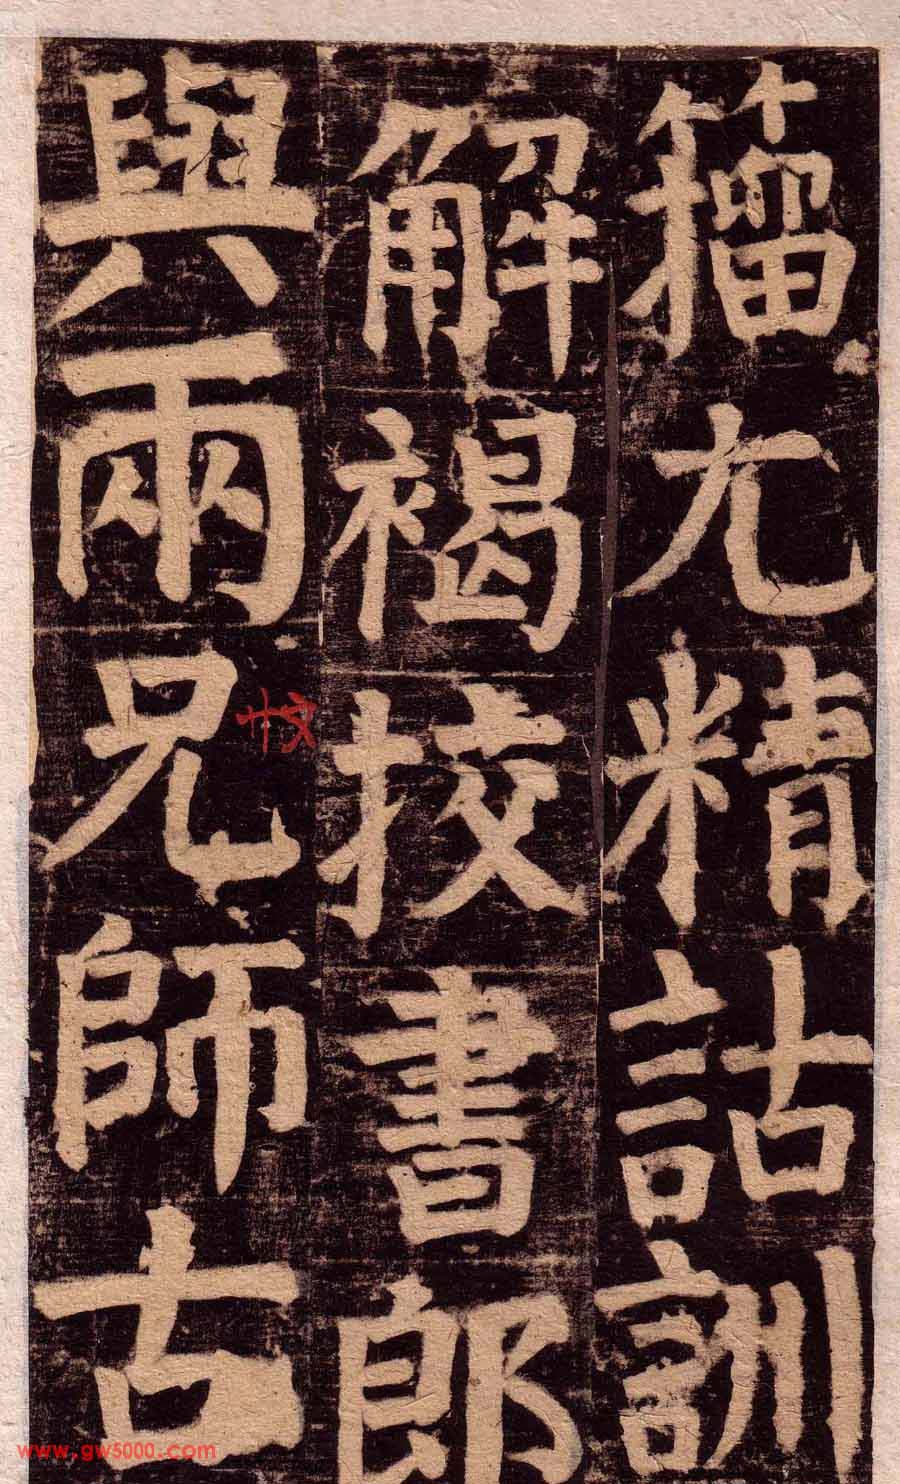 籀尤精詁訓
解褐挍書郎
與兩兄師古
www.gw5000.com